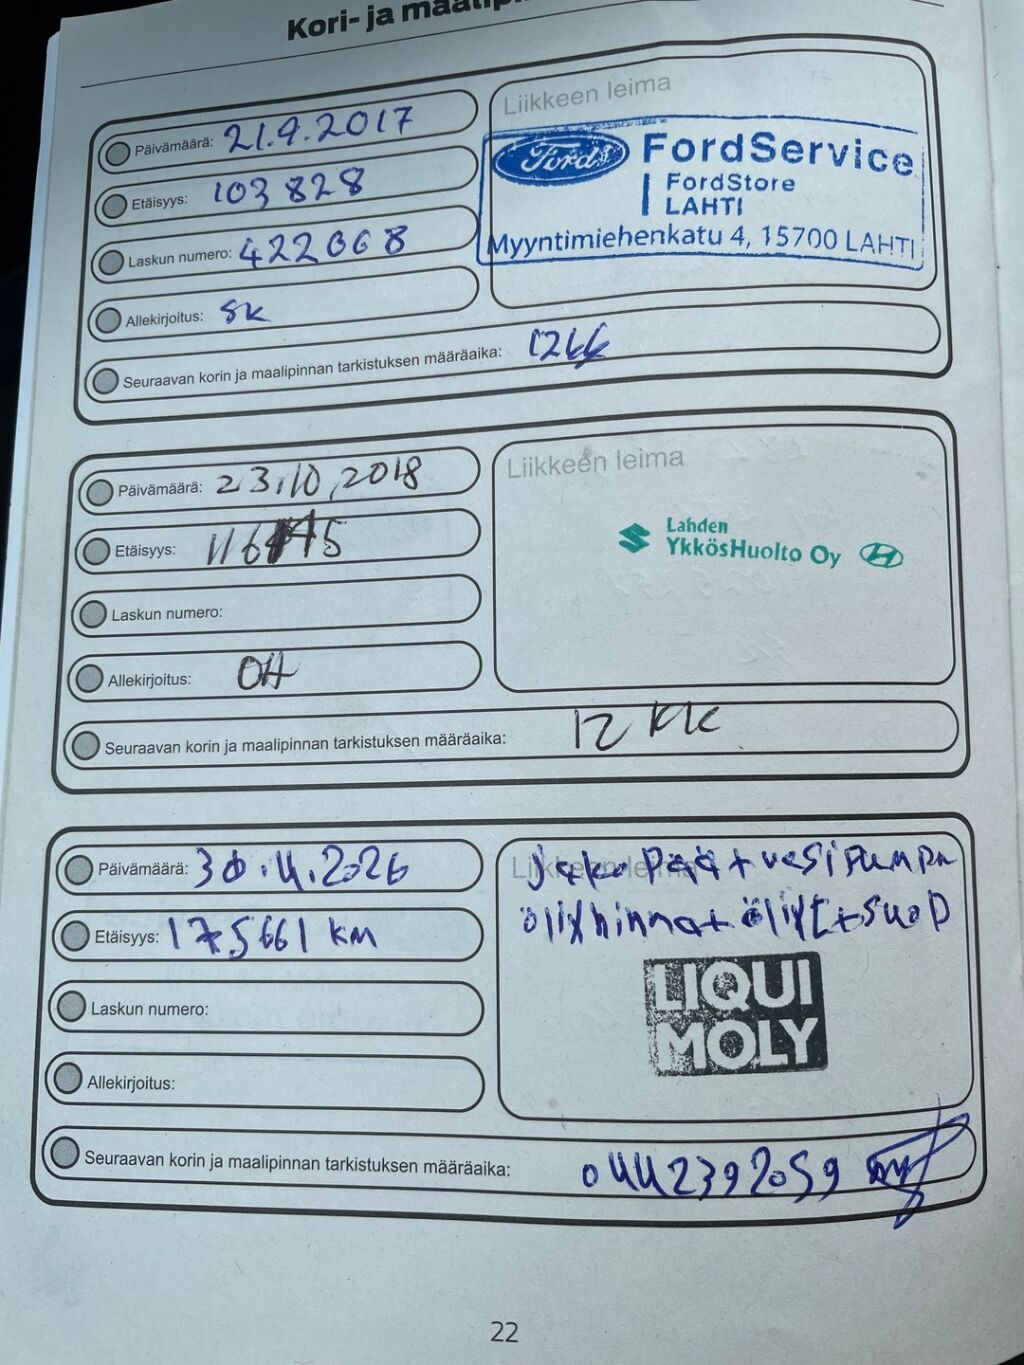 Kori- ja
Päivämäärä: 21.9.2017
Etäisyys: 103 828
Laskun numero: 422068
Allekirjoitus: SK
Seuraavan korin ja maalipinnan tarkistuksen määräaika:
Liikkeen leima
Ford FordService
FordStore
LAHTI
Myyntimiehenkatu 4, 15700 LAHTI
Päivämäärä: 23.10.2018
Etäisyys:
Laskun numero:
Allekirjoitus: OH
Seuraavan korin ja maalipinnan tarkistuksen määräaika: 12 KK
Liikkeen leima
Lahden
YkkösHuolto Oy
Päivämäärä:
Etäisyys: 175661 KM
Laskun numero:
Allekirjoitus:
Seuraavan korin ja maalipinnan tarkistuksen määräaika: 0442392059
Liikkeen leima
Jakopää + vesipumppu
LIQUI
MOLY
22